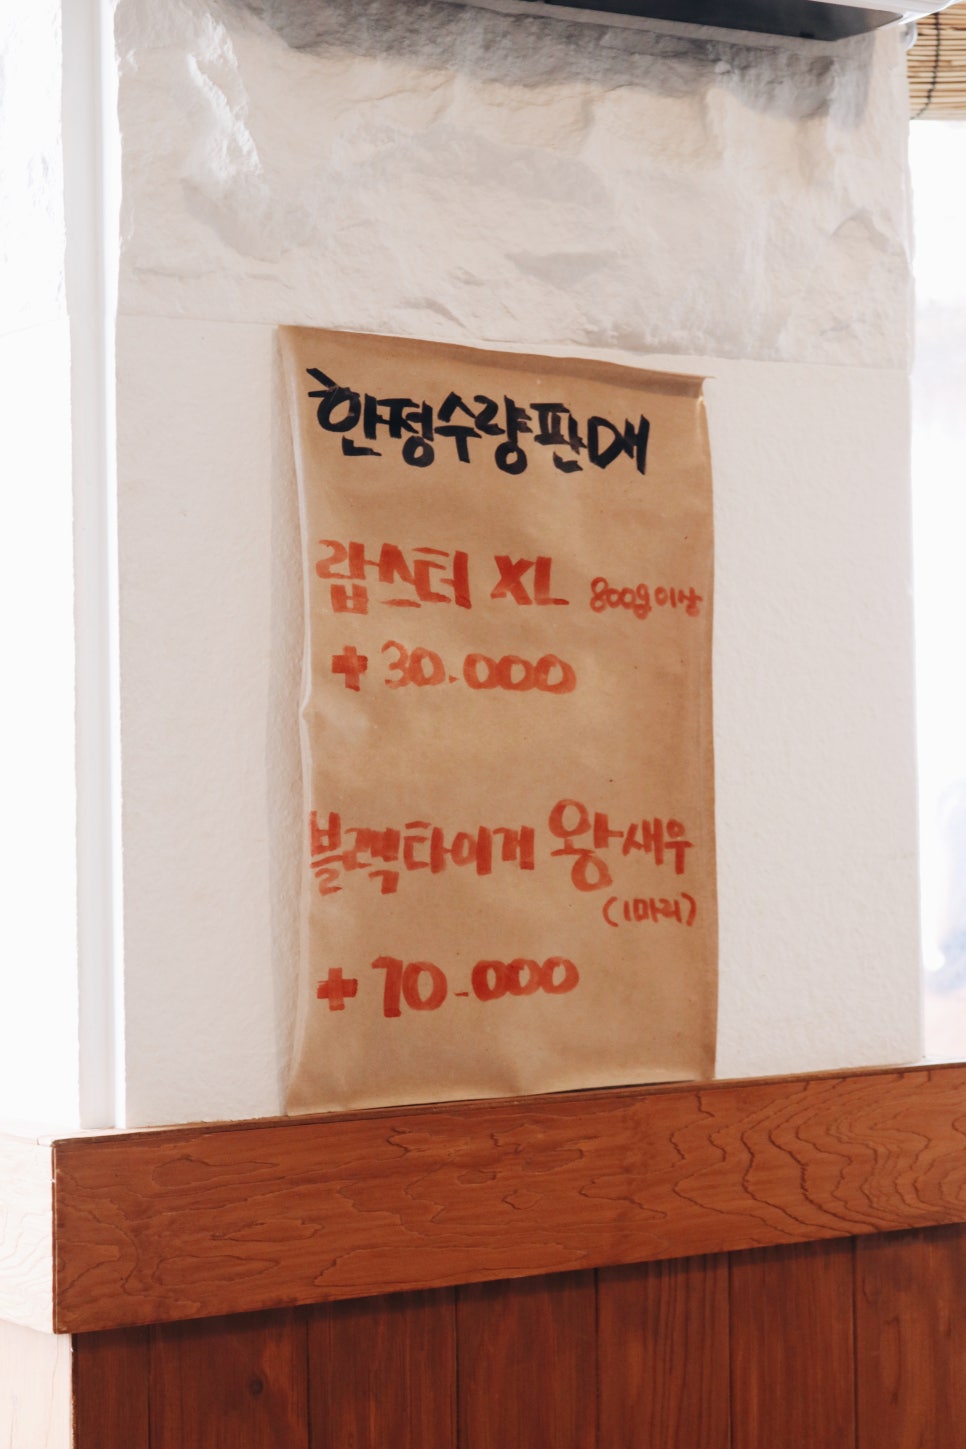 한정수량판매
랍스터 XL 800g이상
+ 30.000
블랙타이거 왕새우
(1마리)
+ 10.000